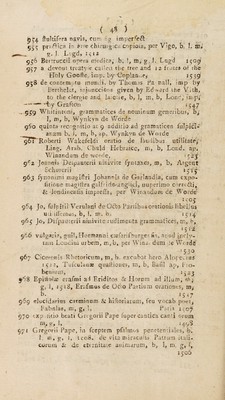 ( 48 )
954 Stultifera navis, cum fig imperfect
955 practica in arte chirurgica copiosa, per Vigo, b. l. m.
g. l. Lugd. 1512
956 Bertrucell opera medica, b. l, m, g, l Lugd 1509
957 a devout treatyse called the tree and 12 fruites of the
Holy Gooste, imp. by Coplande, 1539
958 de contemptu mundi, by Thomas Pa nell, imp by
Berthelet, injunccions given by Edward the Vith.
to the clergie and laitie, b, l, m, b, Lond, imp;
by Grafton 1547
959 Whittintoni, grammatices de nominum generibus, b,
l, m, b, Wynkyn de Worde
960 quinta recognitio at q additio ad gramatices sulpicia-
nam b, l, m, b, ap. Wynkyn de Worde
961 Roberti Wakefeldi oratio de laudibus utilitate,
Ling. Arab. Chald Hebraice, m, b, Lond. ap,
Winandum de worde, 1525
962 Joannis Despauterii ninivite syntaxes, m, b, Argent
Schurerii 1515
963 synonimi magistri Johannis de Garlandia, cum expo-
sitione magistra galfridi anglici, nuperime correcti,
& londiis impressi, per Winandum de Worde
1505
964 Jo, sulpitii Verulani de Octo Partibus orationis libellus
utilissimus, b, l, m, b. 1514
965 Jo, Despauterii ninivite rudimenta grammatices, m, b,
1514
966 vulgaria, guil, Hormanni cæsarisburgensis, apud incly-
tam Londini urbem, m, b, per Winandum de Worde
1530
967 Ciceronis Rhetoricum, m, b, excudot Iteru Alopecius
1521, Tusculanæ quæstiones, m, b, Basil ap, Fro-
benium, 1523
968 Epitomæ erasmi ad Eriditos & Horum ad illum, m,
g, l, 1518, Erasmus de Octo Partium orationes, m,
b. 1517
969 elucidarius carminum & historiarum, seu vocab poet,
Fabulas, m, g, l. Paris 1507
970 expositio beati Gregorii Pape super cantica canticorum
m, g, l. 1498
971 Gregorii Pape, in septem psalmos penetentiales, b,
l, m, g, l, 1508. de vita miraculis Patrum itali-
corum & de æternitate animarum, b, l, m, g, l,
1506